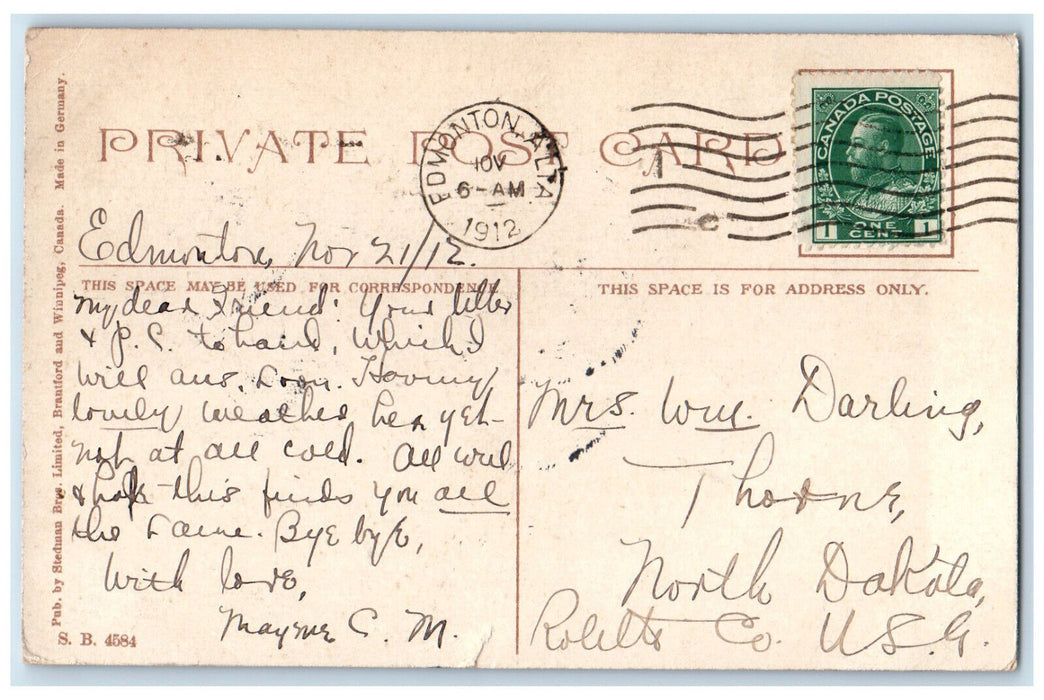 PRIVATE POST CARD
EDMONTON, ALTA
NOV
6-AM
1912
CANADA POSTAGE
1 ONE CENT 1
Edmonton, Nov 21/12.
THIS SPACE MAY BE USED FOR CORRESPONDENCE
My dear Friend: Your letter
& P.C. to hand, which I
will ans. soon. Having
lovely weather here yet-
not at all cold. All well
& hope this finds you all
the same. Bye bye,
With love,
Mayme C. M.
THIS SPACE IS FOR ADDRESS ONLY.
Mrs. Wm. Darling,
Thorne,
North Dakota,
Rolette Co. U.S.A.
Pub. by Stedman Bros. Limited, Brantford and Winnipeg, Canada. Made in Germany.
S. B. 4584